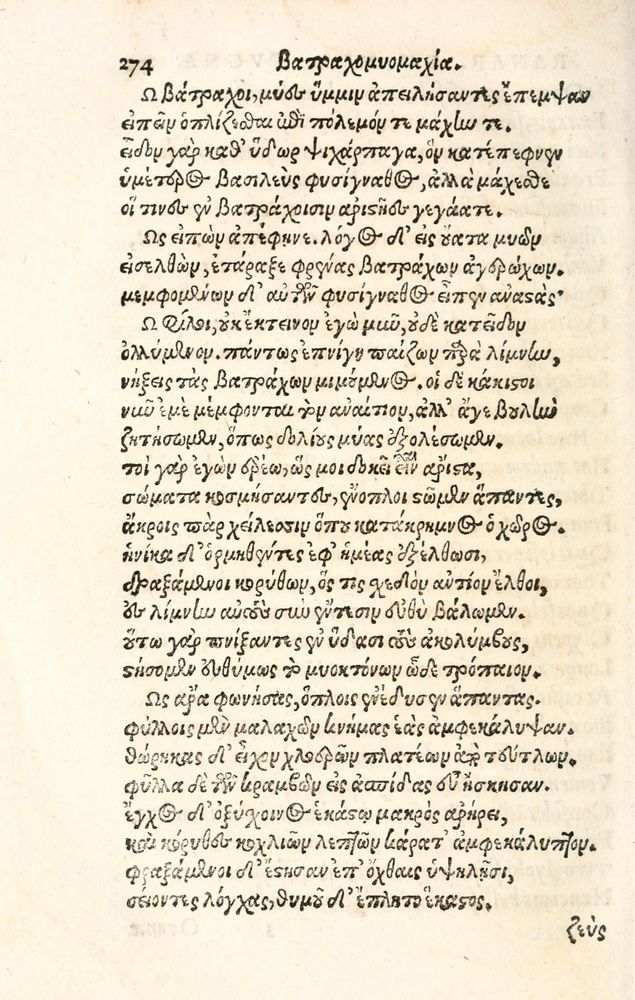 274 Βατραχομυομαχία.
Ω Βάτραχοι, μύες ὔμμιν ἀπειλήσαντες ἔπεμψαν
εἰπεῖν ὁπλίζεσθαι ἐπὶ πόλεμόν τε μάχην τε.
εἶδον γὰρ καθ' ὕδωρ ψιχάρπαγα, ὃν κατέπεφνεν
ὑμέτερος βασιλεὺς φυσίγναθος, ἀλλὰ μάχεσθε
οἵ τινες ἐν βατράχοισιν ἀριστῆες γεγάατε.
Ως εἰπὼν ἀπέφηνε. λόγος δ' εἰς οὔατα μυῶν
εἰσελθὼν, ἐτάραξε φρένας βατράχων ἀγερώχων.
μεμφομένων δ' αὐτῶν φυσίγναθος εἶπεν ἀναστάς·
Ω Φίλοι, οὐκ ἔκτεινον ἐγὼ μῦν, οὐδὲ κατεῖδον
ὀλλύμενον. πάντως ἐπνίγη παίζων παρὰ λίμνην,
νήξεις τὰς βατράχων μιμούμενος. οἱ δὲ κάκιστοι
νῦν ἐμὲ μέμφονται τὸν ἀναίτιον, ἀλλ' ἄγε βουλὴν
ζητήσωμεν, ὅπως δολίους μύας ἐξολέσωμεν.
τοὶ γὰρ ἐγὼν ἐρέω, ὥς μοι δοκεῖ εἶναι ἄριστα,
σώματα κοσμήσαντες, ἔνοπλοι στῶμεν ἅπαντες,
ἄκροις παρ χείλεσιν ὅπου κατάκρημνος ὁ χῶρος.
ἡνίκα δ' ὁρμηθέντες ἐφ' ἡμέας ἐξέλθωσι,
δραξάμενοι κορύθων, ὅς τις σχεδὸν ἀντίον ἔλθοι,
ἐς λίμνην αὐτοὺς σὺν ἔντεσιν εὐθὺ βάλωμεν.
οὕτω γὰρ πνίξαντες ἐν ὕδασι τοὺς ἀκολύμβους,
στήσομεν εὐθύμως τὸ μυοκτόνον ὧδε τρόπαιον.
Ως ἄρα φωνήσας, ὅπλοις ἐνέδυσεν ἅπαντας.
φύλλοις μὲν μαλαχῶν κνήμας ἑὰς ἀμφεκάλυψαν.
θώρηκας δ' εἶχον χλοερῶν πλατέων ἀπὸ τεύτλων.
φύλλα δὲ τῶν κραμβῶν εἰς ἀσπίδας εὖ ἤσκησαν.
ἔγχος δ' ὀξύσχοινος ἑκάστῳ μακρὸς ἀρήρει,
καὶ κόρυθες κοχλιῶν λεπτῶν κάρατ' ἀμφεκάλυπτον.
φραξάμενοι δ' ἔστησαν ἐπ' ὄχθαις ὑψηλῇσι,
σείοντες λόγχας, θυμοῦ δ' ἔπλητο ἕκαστος.
ζεὺς